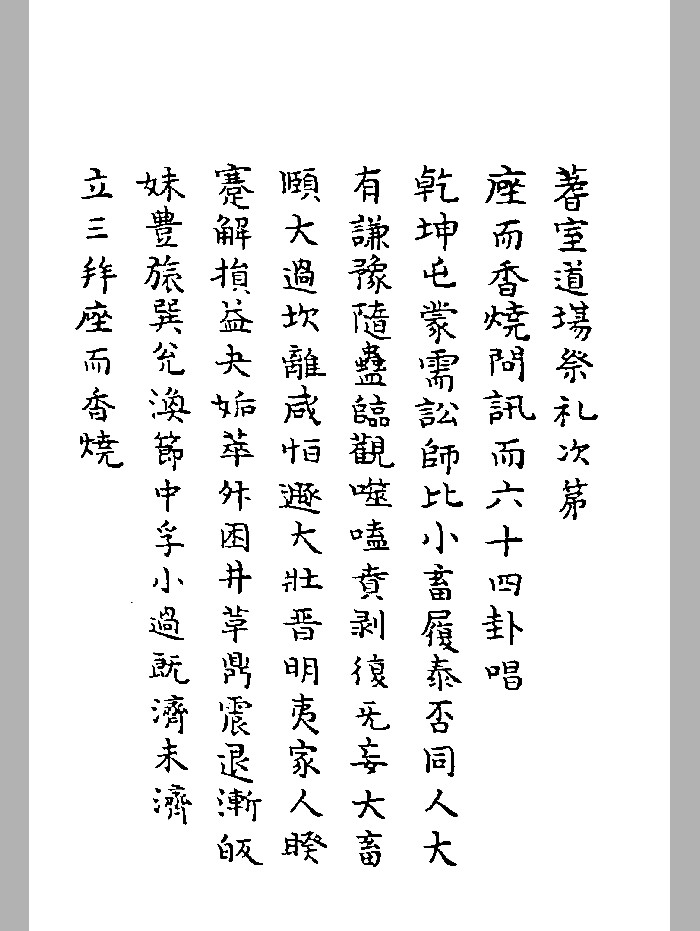 蓍室道場祭礼次第
座而香焼問訊而六十四卦唱
乾坤屯蒙需訟師比小畜履泰否同人大
有謙豫隨蠱臨觀噬嗑賁剥復无妄大畜
頤大過坎離咸怕遯大壯晋明夷家人睽
蹇解損益夬姤萃舛困井草鼎震退漸皈
妹豊旅巽兊渙節中孚小過既濟未濟
立三拜座而香焼